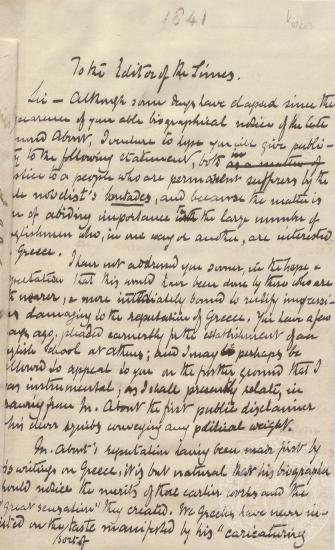 1841
To the Editor of the Times.
Sir — Although some days have elapsed since the
pearance of your able biographical notice of the late
mund About, I venture to hope you will give publici-
ty to the following statement, both as a matter of
stice to a people who are permanent sufferers by the
le novelist's boutades, and because the matter is
e of abiding importance to the large number of
glishmen who, in one way or another, are interested
Greece.
I have not addressed you sooner, in the hope &
pectation that this would have been done by those who are
nearer, & more immediately bound to rectify impressi-
s damaging to the reputation of Greece. You have a few
ays ago, pleaded earnestly for the establishment of an
glish School at Athens; and I may perhaps be
llowed to appeal to you on the further ground that I
was instrumental, as I shall presently relate, in
drawing from M. About the first public disclaimer
his clever squibs conveying any political weight.
M. About's reputation having been made first by
s writings on Greece, it is but natural that his biographer
should notice the merits of those earlier works and the
"great sensation" they created. We Greeks have never in-
sisted on the taste manifested by his "caricaturing
sort of